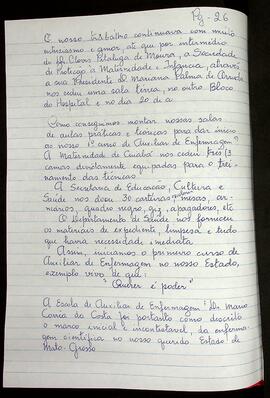 Pg - 26
E nosso trabalho continuava com muito
entusiasmo e amor, até que por intermédio
do Dr. Clovis Pitaluga de Moura, a Sociedade
de Proteção à Maternidade e Infância, através
a sua Presidente Dª Mariana Palma de Arruda
nos cedeu uma sala térrea, no outro Bloco
do Hospital e no dia 20 de
Como conseguimos montar nossas salas
de aulas práticas e teóricas para dar início
ao nosso 1º curso de Auxiliar de Enfermagem?
A Maternidade de Cuiabá nos cedeu três (3)
camas devidamente equipadas para o trei-
namento das técnicas.
A Secretaria de Educação, Cultura e
Saúde nos doou 30 carteiras, mesas, ar-
mários, quadro negro, giz, apagadores, etc
O Departamento de Saúde nos forneceu
os materiais de expediente, limpeza e tudo
que havia necessidade imediata.
Assim, iniciamos o primeiro curso de
Auxiliar de Enfermagem no nosso Estado,
exemplo vivo de que:
"Querer é poder"
A Escola de Auxiliar de Enfermagem "Dr. Mario
Corrêa da Costa foi portanto como descrito
o marco inicial e incontestável, da enferma-
gem científica no nosso querido Estado de
Mato-Grosso